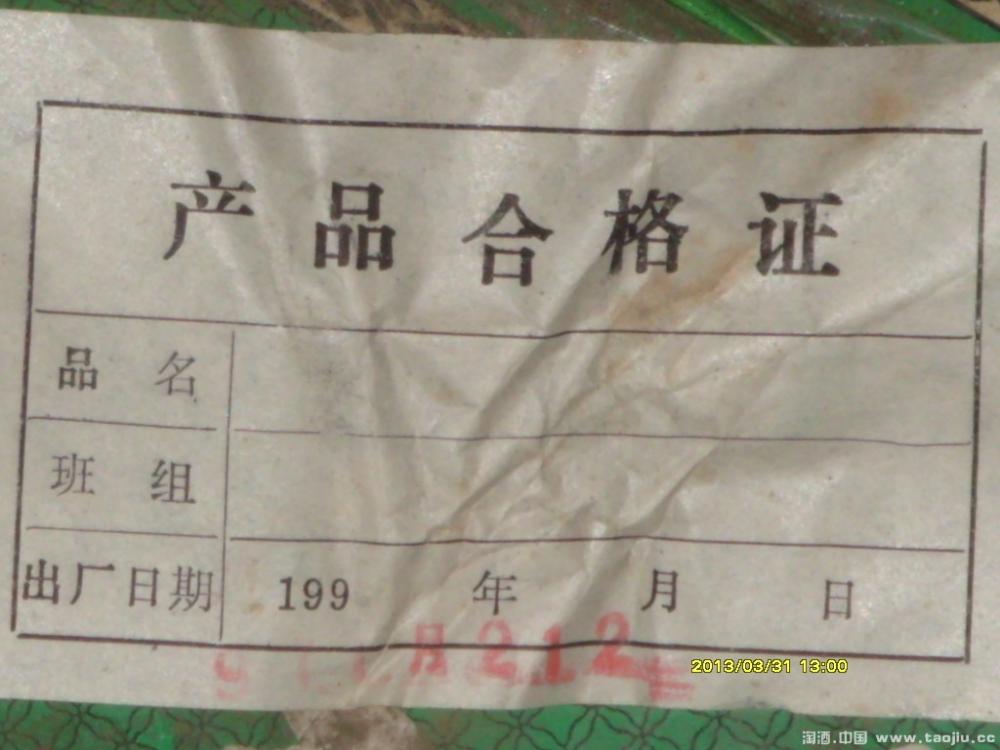 产品合格证
品名
班组
出厂日期 199 年 月 日
月212
2013/03/31 13:00
淘酒.中国 www.taojiu.cc